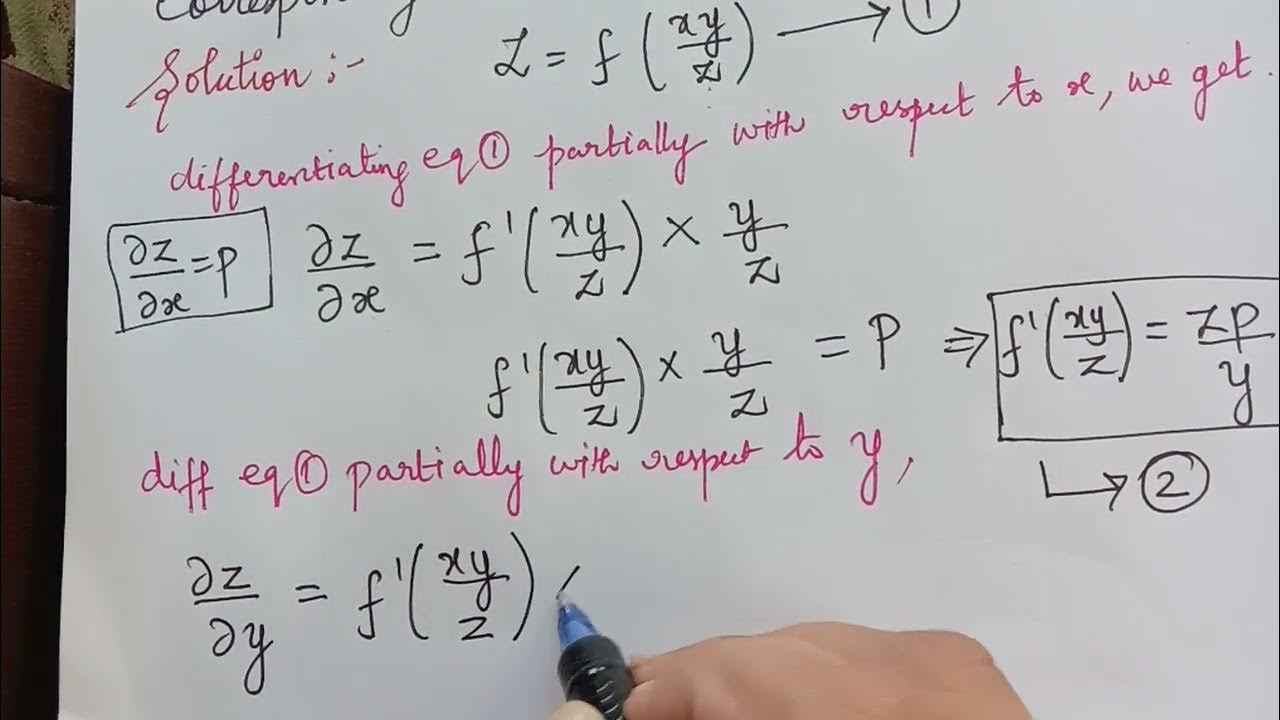 Solution :-
Z = f (xy/z) → ①
differentiating eq ① partially with respect to x, we get.
∂z/∂x = P
∂z/∂x = f'(xy/z) × y/z
f'(xy/z) × y/z = P ⇒ f'(xy/z) = zp/y
↳ ②
diff eq ① partially with respect to y,
∂z/∂y = f'(xy/z)